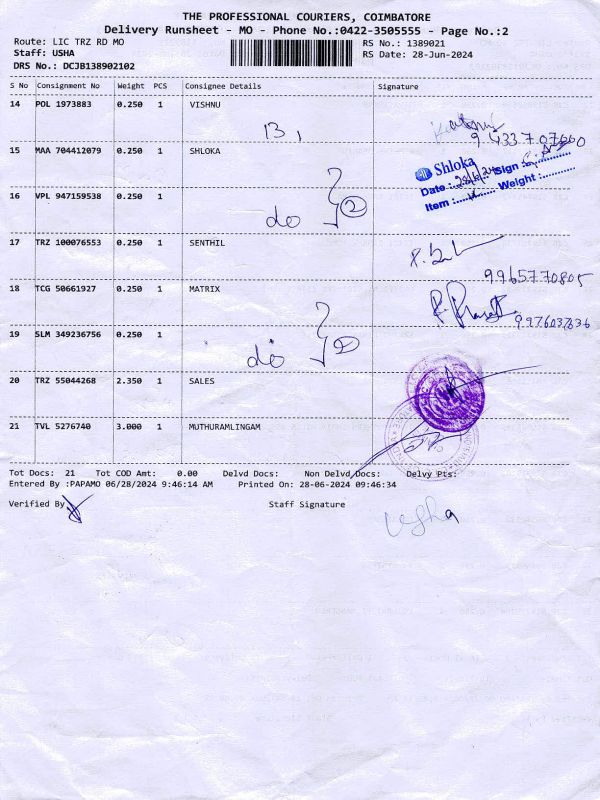 THE PROFESSIONAL COURIERS, COIMBATORE
Delivery Runsheet - MO - Phone No.:0422-3505555 - Page No.:2
Route: LIC TRZ RD MO
RS No.: 1389021
Staff: USHA
RS Date: 28-Jun-2024
DRS No.: DCJB138902102
S No Consignment No Weight PCS Consignee Details Signature
14 POL 1973883 0.250 1 VISHNU
13,
15 MAA 704412079 0.250 1 SHLOKA
Shloka
Date : Sign :
Item : Weight :
16 VPL 947159538 0.250 1
do 2
17 TRZ 100076553 0.250 1 SENTHIL
9965770805
18 TCG 50661927 0.250 1 MATRIX
19 SLM 349236756 0.250 1
do 2
20 TRZ 55044268 2.350 1 SALES
21 TVL 5276740 3.000 1 MUTHURAMLINGAM
Tot Docs: 21 Tot COD Amt: 0.00 Delvd Docs: Non Delvd Docs: Delvy Pts:
Entered By :PAPAMO 06/28/2024 9:46:14 AM Printed On: 28-06-2024 09:46:34
Verified By Staff Signature
Usha